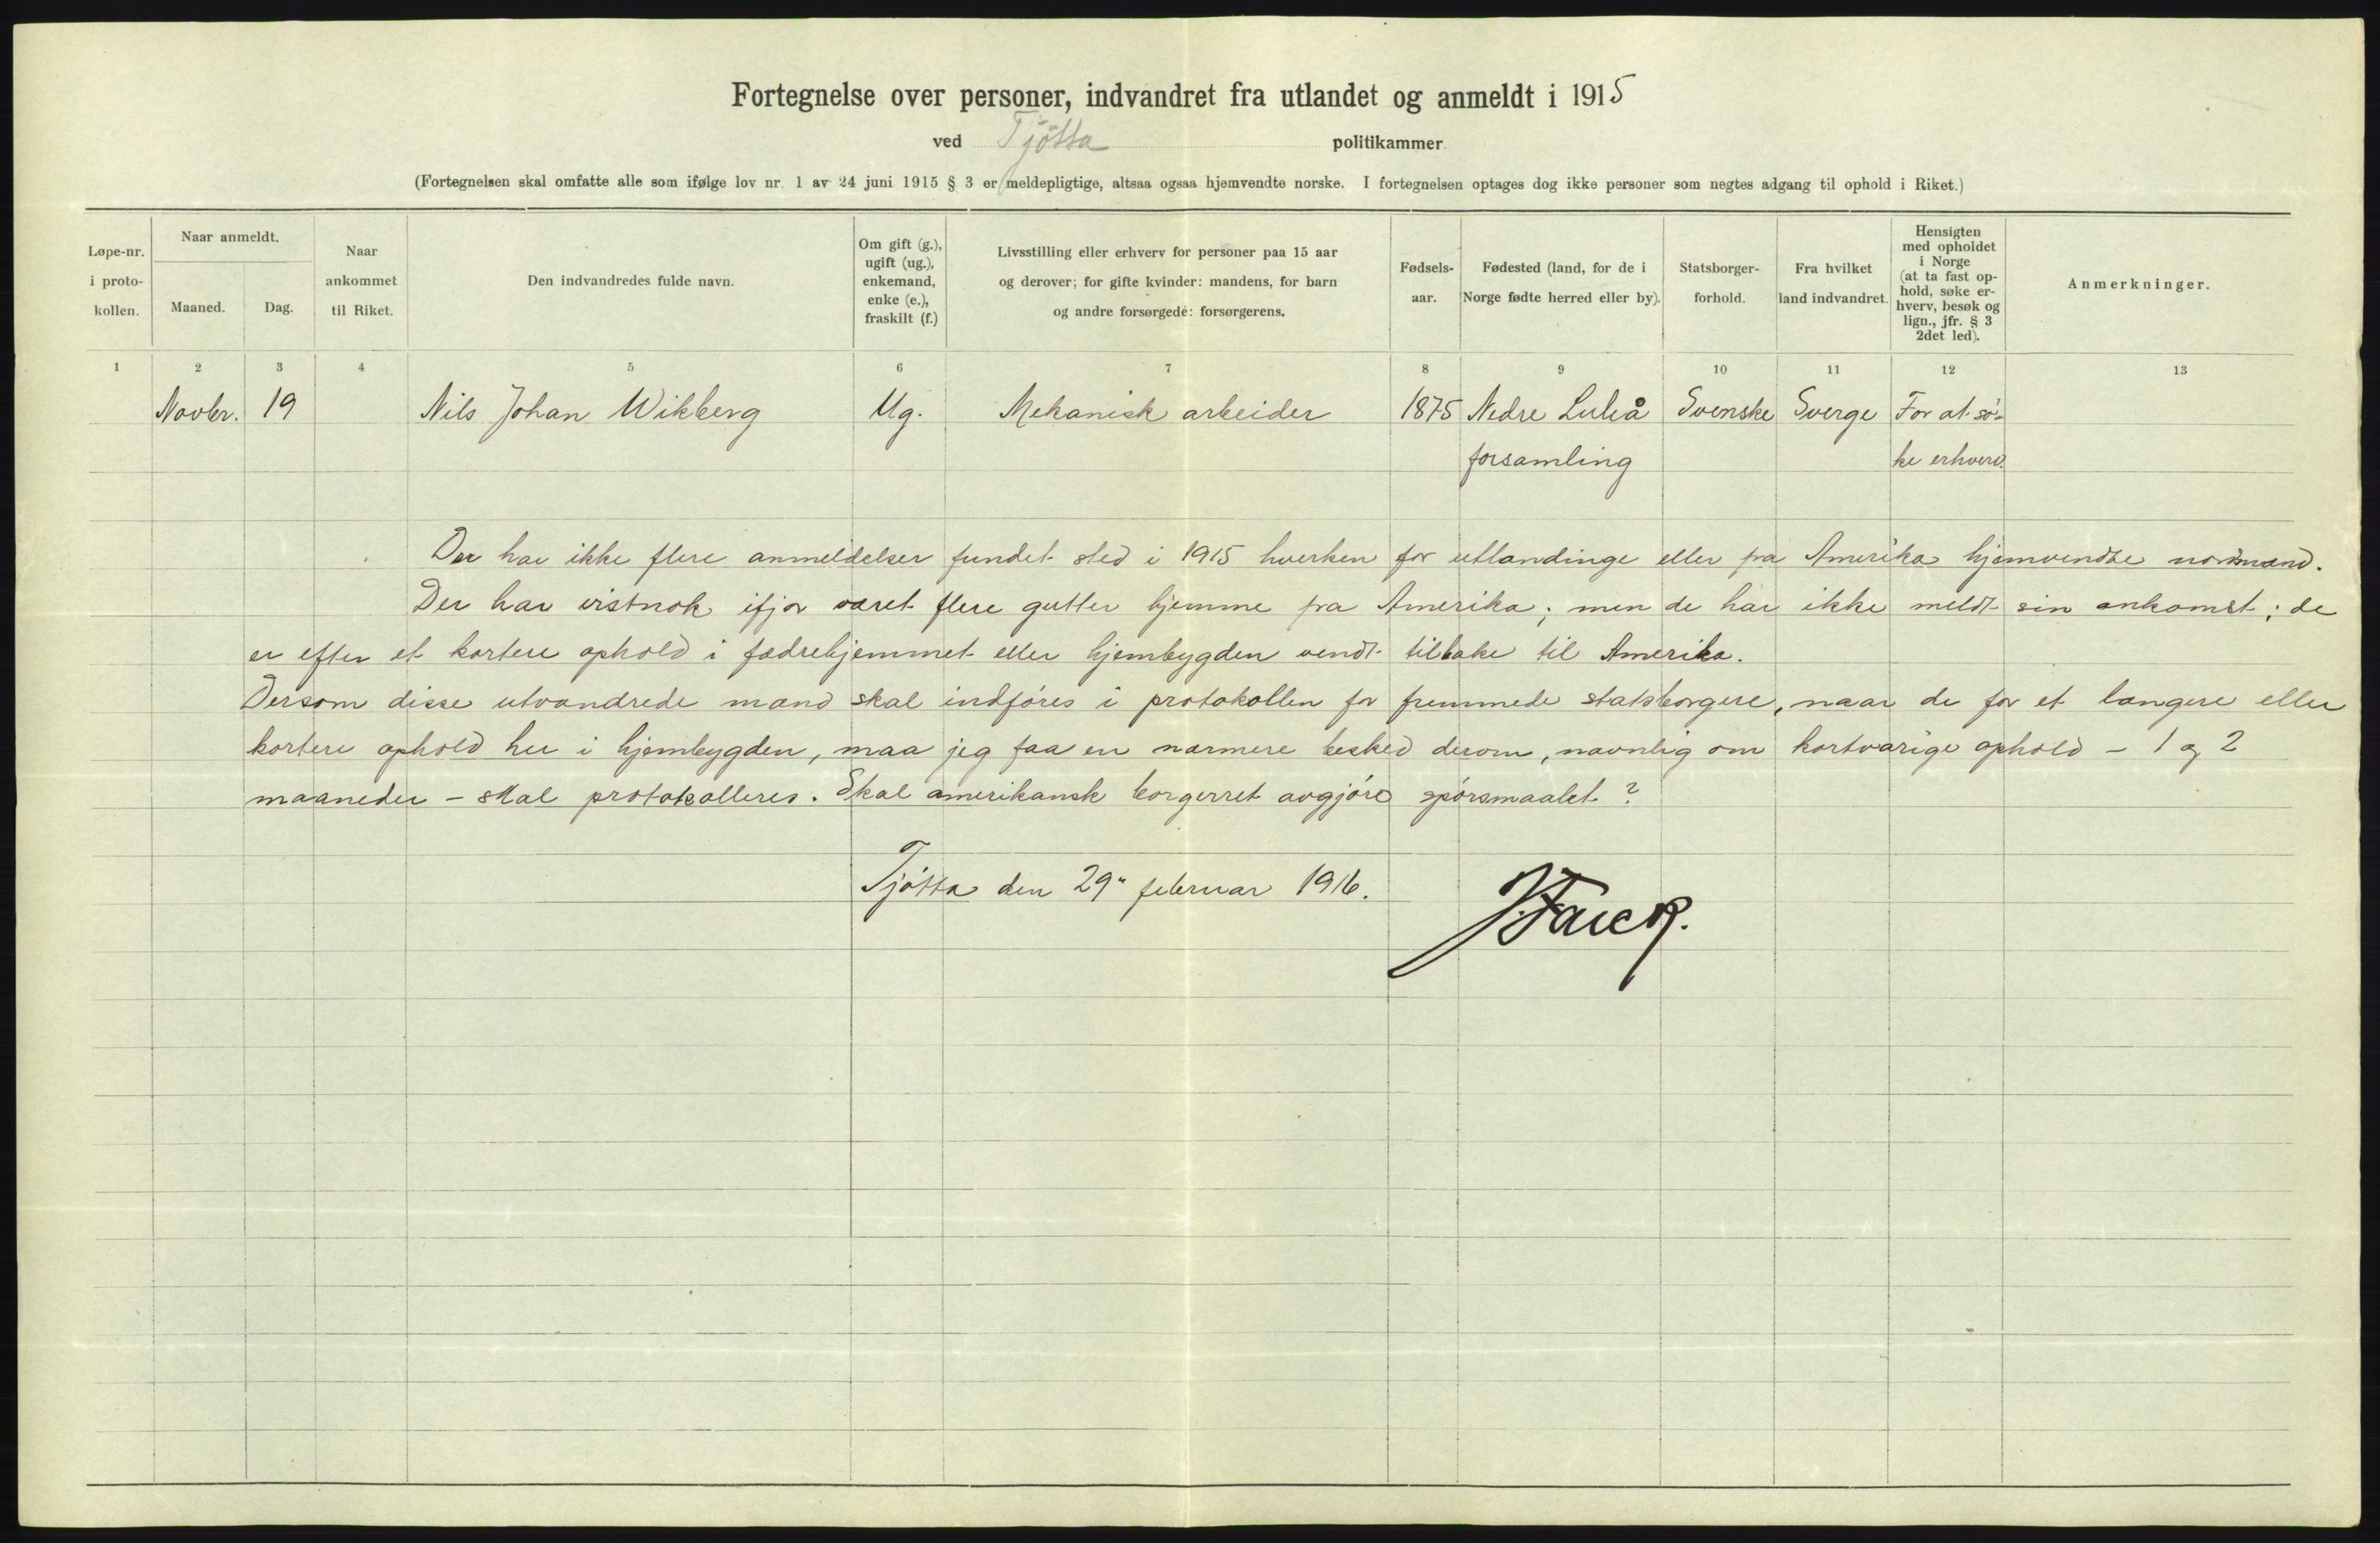 Fortegnelse over personer, indvandret fra utlandet og anmeldt i 1915
ved Tjøtta politikammer.
(Fortegnelsen skal omfatte alle som ifølge lov nr. 1 av 24 juni 1915 § 3 er meldepligtige, altsaa ogsaa hjemvendte norske. I fortegnelsen optages dog ikke personer som negtes adgang til ophold i Riket.)
Løpe-nr.
i proto-
kollen.
Naar anmeldt.
Maaned.
Dag.
Naar
ankommet
til Riket.
Den indvandredes fulde navn.
Om gift (g.),
ugift (ug.),
enkemand,
enke (e.),
fraskilt (f.)
Livsstilling eller erhverv for personer paa 15 aar
og derover; for gifte kvinder: mandens, for barn
og andre forsørgede: forsørgerens.
Fødsels-
aar.
Fødested (land, for de i
Norge fødte herred eller by).
Statsborger-
forhold.
Fra hvilket
land indvandret.
Hensigten
med opholdet
i Norge
(at ta fast op-
hold, søke er-
hverv, besøk og
lign., jfr. § 3
2det led).
Anmerkninger.
1 2 3 4 5 6 7 8 9 10 11 12 13
Novbr. 19 Nils Johan Wikberg Ug. Mekanisk arbeider 1875 Nedre Luleå Svenske Sverge For at sø-
forsamling ke erhverv.
Der har ikke flere anmeldelser fundet sted i 1915 hverken for utlandinge eller fra Amerika hjemvendte nordmænd.
Der har vistnok ifjor været flere gutter hjemme fra Amerika; men de har ikke meldt sin ankomst; de
er efter et kortere ophold i fædrehjemmet eller hjembygden vendt tilbake til Amerika.
Dersom disse utvandrede mænd skal indføres i protokollen for fremmede statsborgere, naar de for et længere eller
kortere ophold her i hjembygden, maa jeg faa en nærmere besked derom, navnlig om kortvarige ophold – 1 og 2
maaneder – skal protokolleres. Skal amerikansk borgerret avgjøre spørsmaalet?
Tjøtta den 29" februar 1916.